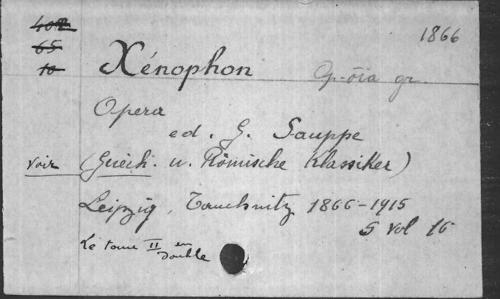 402
65
10
1866
Xénophon
gr
Opera
ed. G. Sauppe
voir (Griech. u. Römische Klassiker)
Leipzig, Tauchnitz 1866-1915
5 vol 16
Le tome II en double